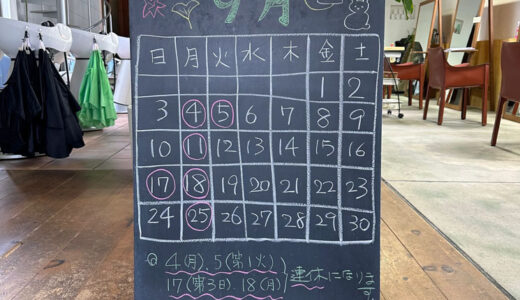 9月
日 月 火 水 木 金 土
1 2
3 4 5 6 7 8 9
10 11 12 13 14 15 16
17 18 19 20 21 22 23
24 25 26 27 28 29 30
4(月). 5(第1火)
17(第3日). 18(月)
連休になります